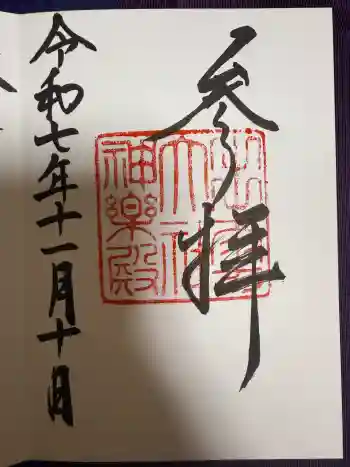 参拝
出雲大社神楽殿
令和七年十一月十日